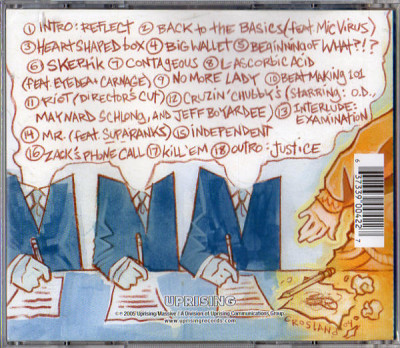 ① INTRO: REFLECT ② BACK TO THE BASICS (feat MIC VIRUS)
③ HEART SHAPED BOX ④ BIG WALLET ⑤ BEGINNING OF WHAT?!?
⑥ SKEPTIK ⑦ CONTAGEOUS ⑧ L-ASCORBIC ACID
(FEAT. EYEDEA & CARNAGE) ⑨ NO MORE LADY ⑩ BEAT MAKING 101
⑪ RIOT (DIRECTOR'S CUT) ⑫ CRUZIN' CHUBBY'S (STARRING: O.D.,
MAYNARD SCHLONG, AND JEFF BOYARDEE) ⑬ INTERLUDE:
EXAMINATION
⑭ MR. (FEAT SUPARANKS) ⑮ INDEPENDENT
⑯ ZACK'S PHONE CALL ⑰ KILL 'EM ⑱ OUTRO: JUSTICE
6 57339 00422 7
UPRISING
℗ © 2005 Uprising/Massive / A Division of Uprising Communications Group
www.uprisingrecords.com
CROSLAND